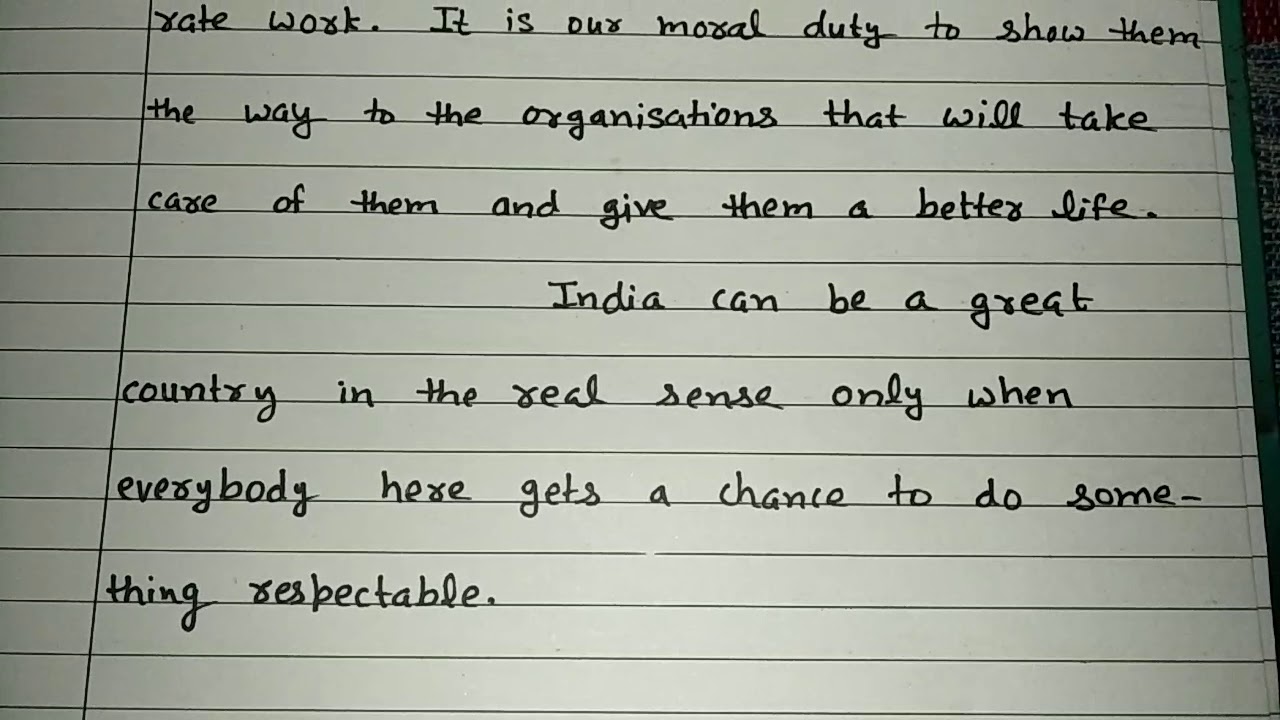 rate work. It is our moral duty to show them
the way to the organisations that will take
care of them and give them a better life.
India can be a great
country in the real sense only when
everybody here gets a chance to do some-
thing respectable.